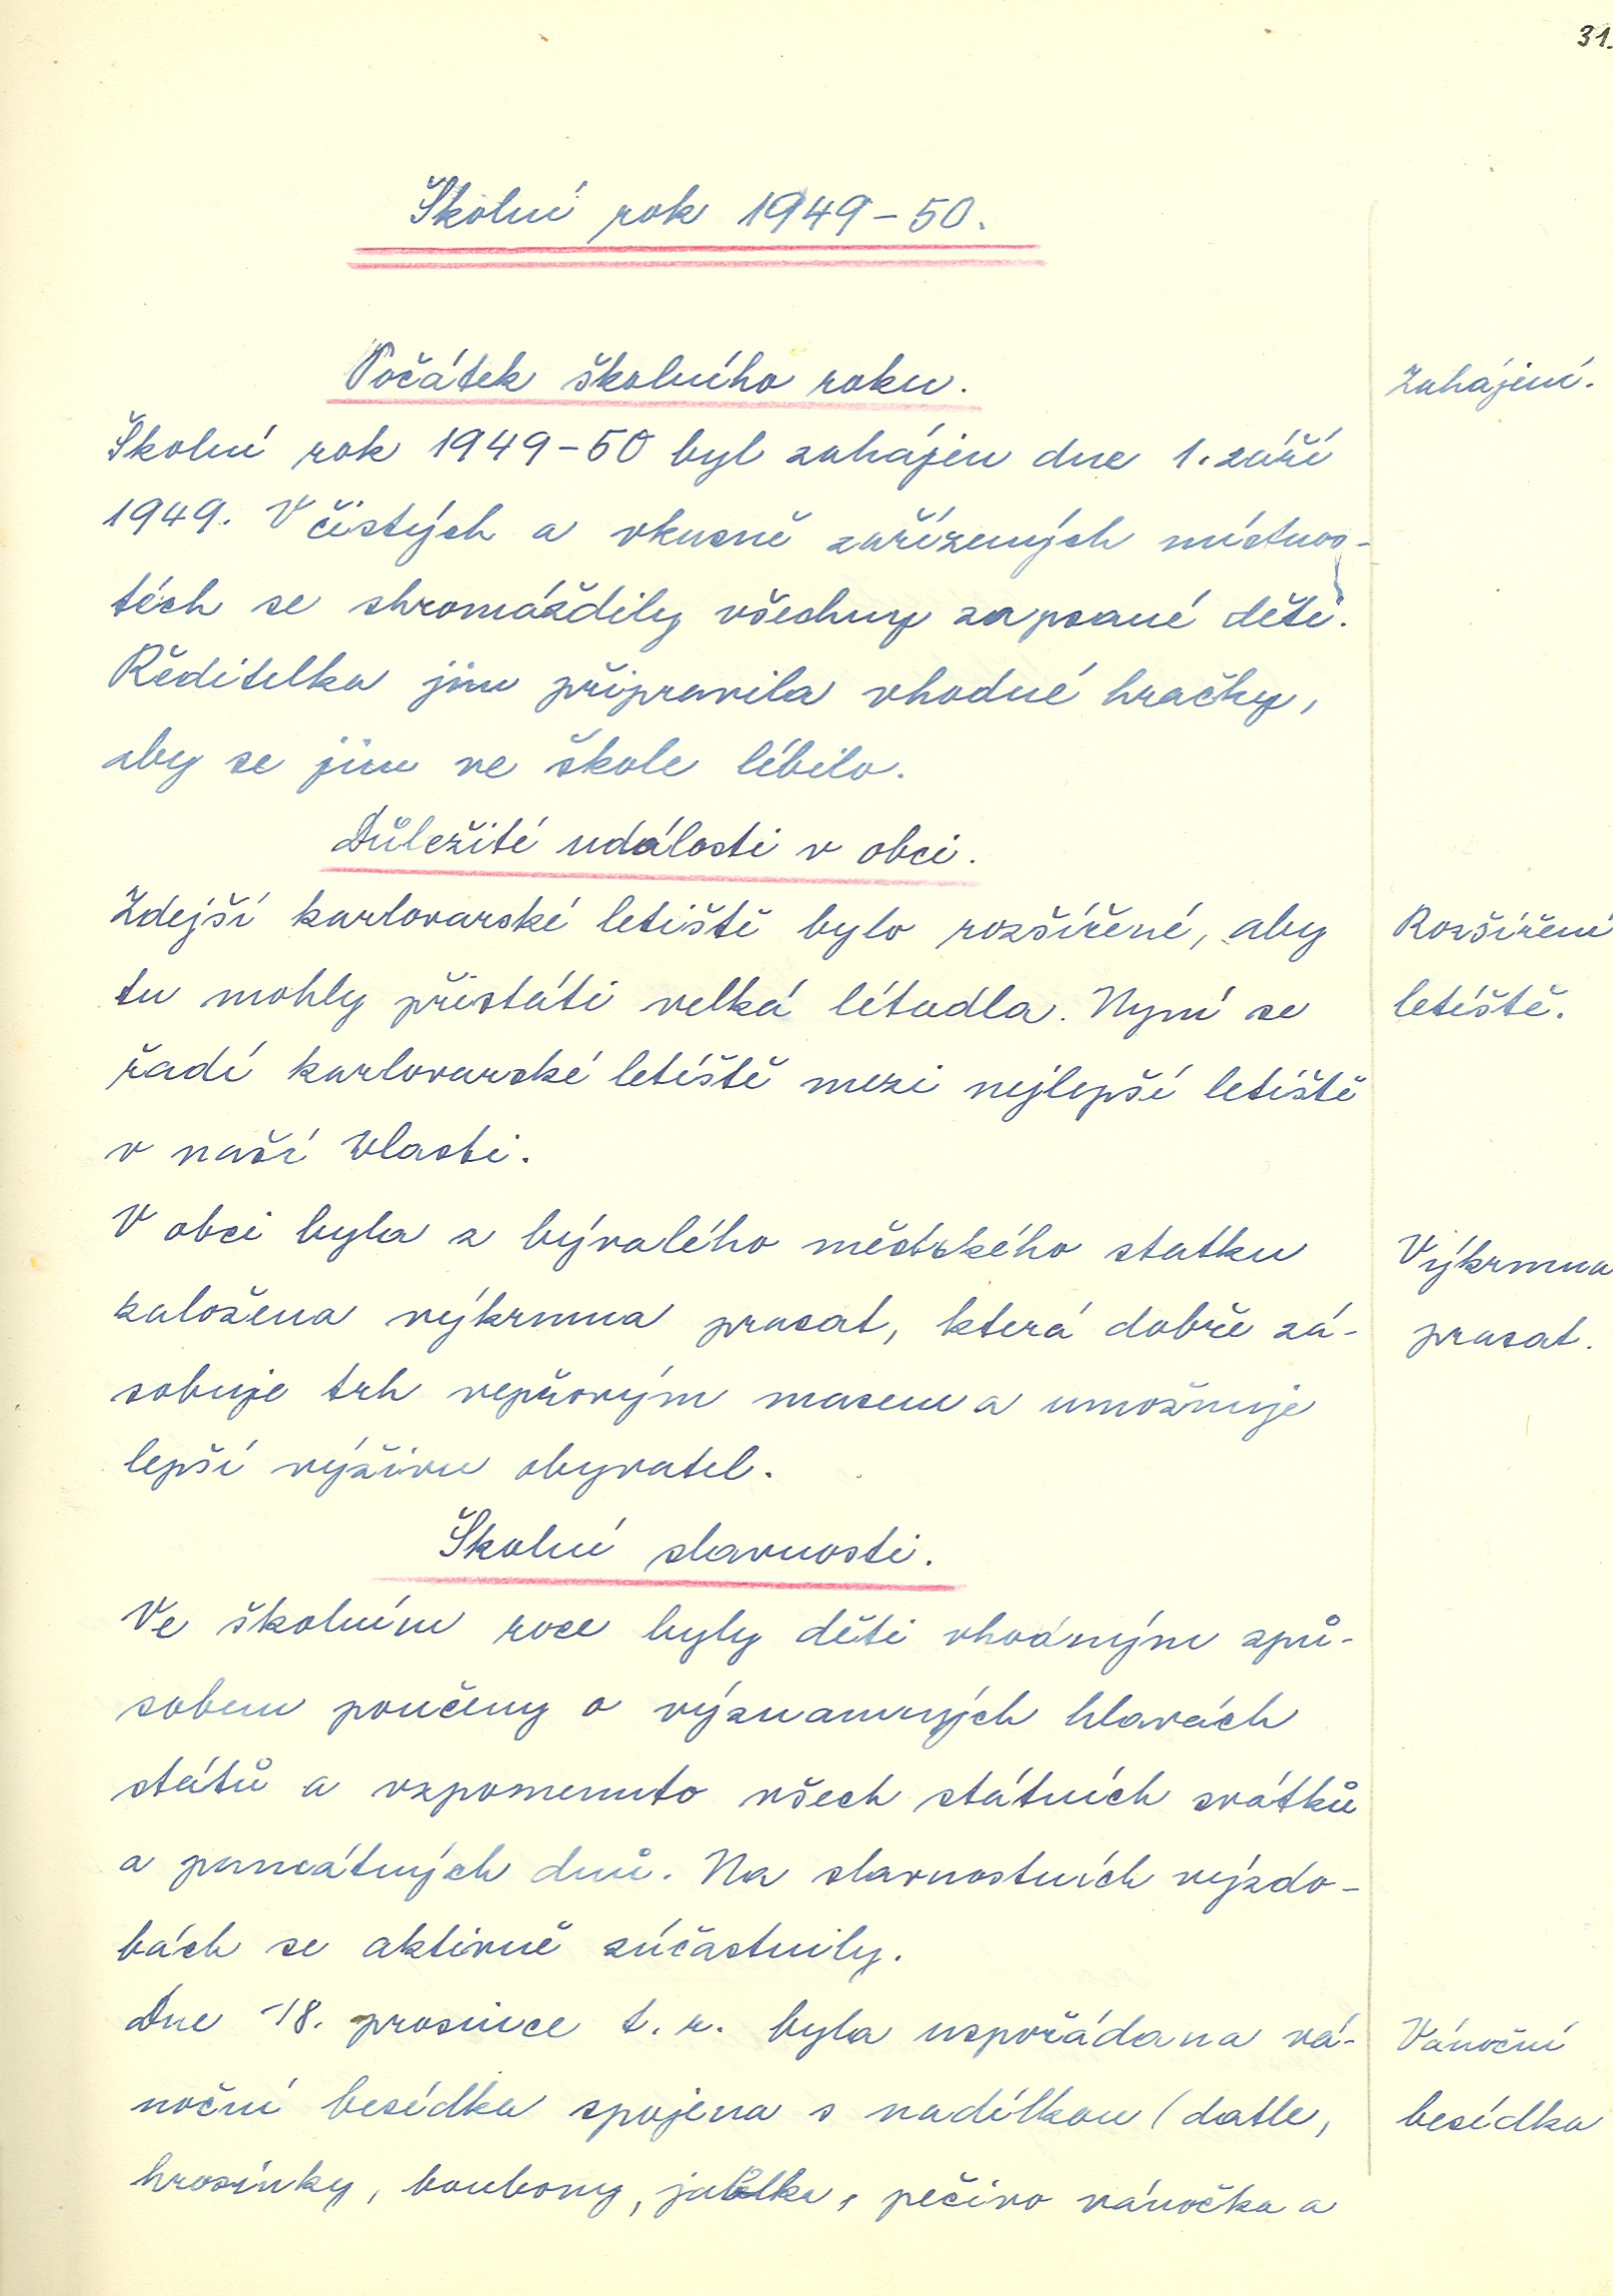 31.
Školní rok 1949-50.
Počátek školního roku.
Zahájení.
Školní rok 1949-50 byl zahájen dne 1. září
1949. V čistých a vkusně zařízených místnos-
tech se shromáždily všechny zapsané děti.
Ředitelka jim připravila vhodné hračky,
aby se jim ve škole líbilo.
Důležité události v obci.
Zdejší karlovarské letiště bylo rozšířené, aby
Rozšíření
tu mohly přistáti velká letadla. Nyní se
letiště.
řadí karlovarské letiště mezi nejlepší letiště
v naší vlasti.
V obci byla z bývalého městského statku
Výkrmna
založena výkrmna prasat, která dobře zá-
prasat.
sobuje trh vepřovým masem a umožnuje
lepší výživu obyvatel.
Školní slavnosti.
Ve školním roce byly děti vhodným způ-
sobem poučeny o významných hlavách
států a vzpomenuto všech státních svátků
a památných dnů. Na slavnostních výzdo-
bách se aktivně zúčastnily.
Dne 18. prosince t. r. byla uspořádana vá-
Vánoční
noční besídka spojena s nadílkou (datle,
besídka
hrosinky, bonbony, jablka, pečivo vánočka a